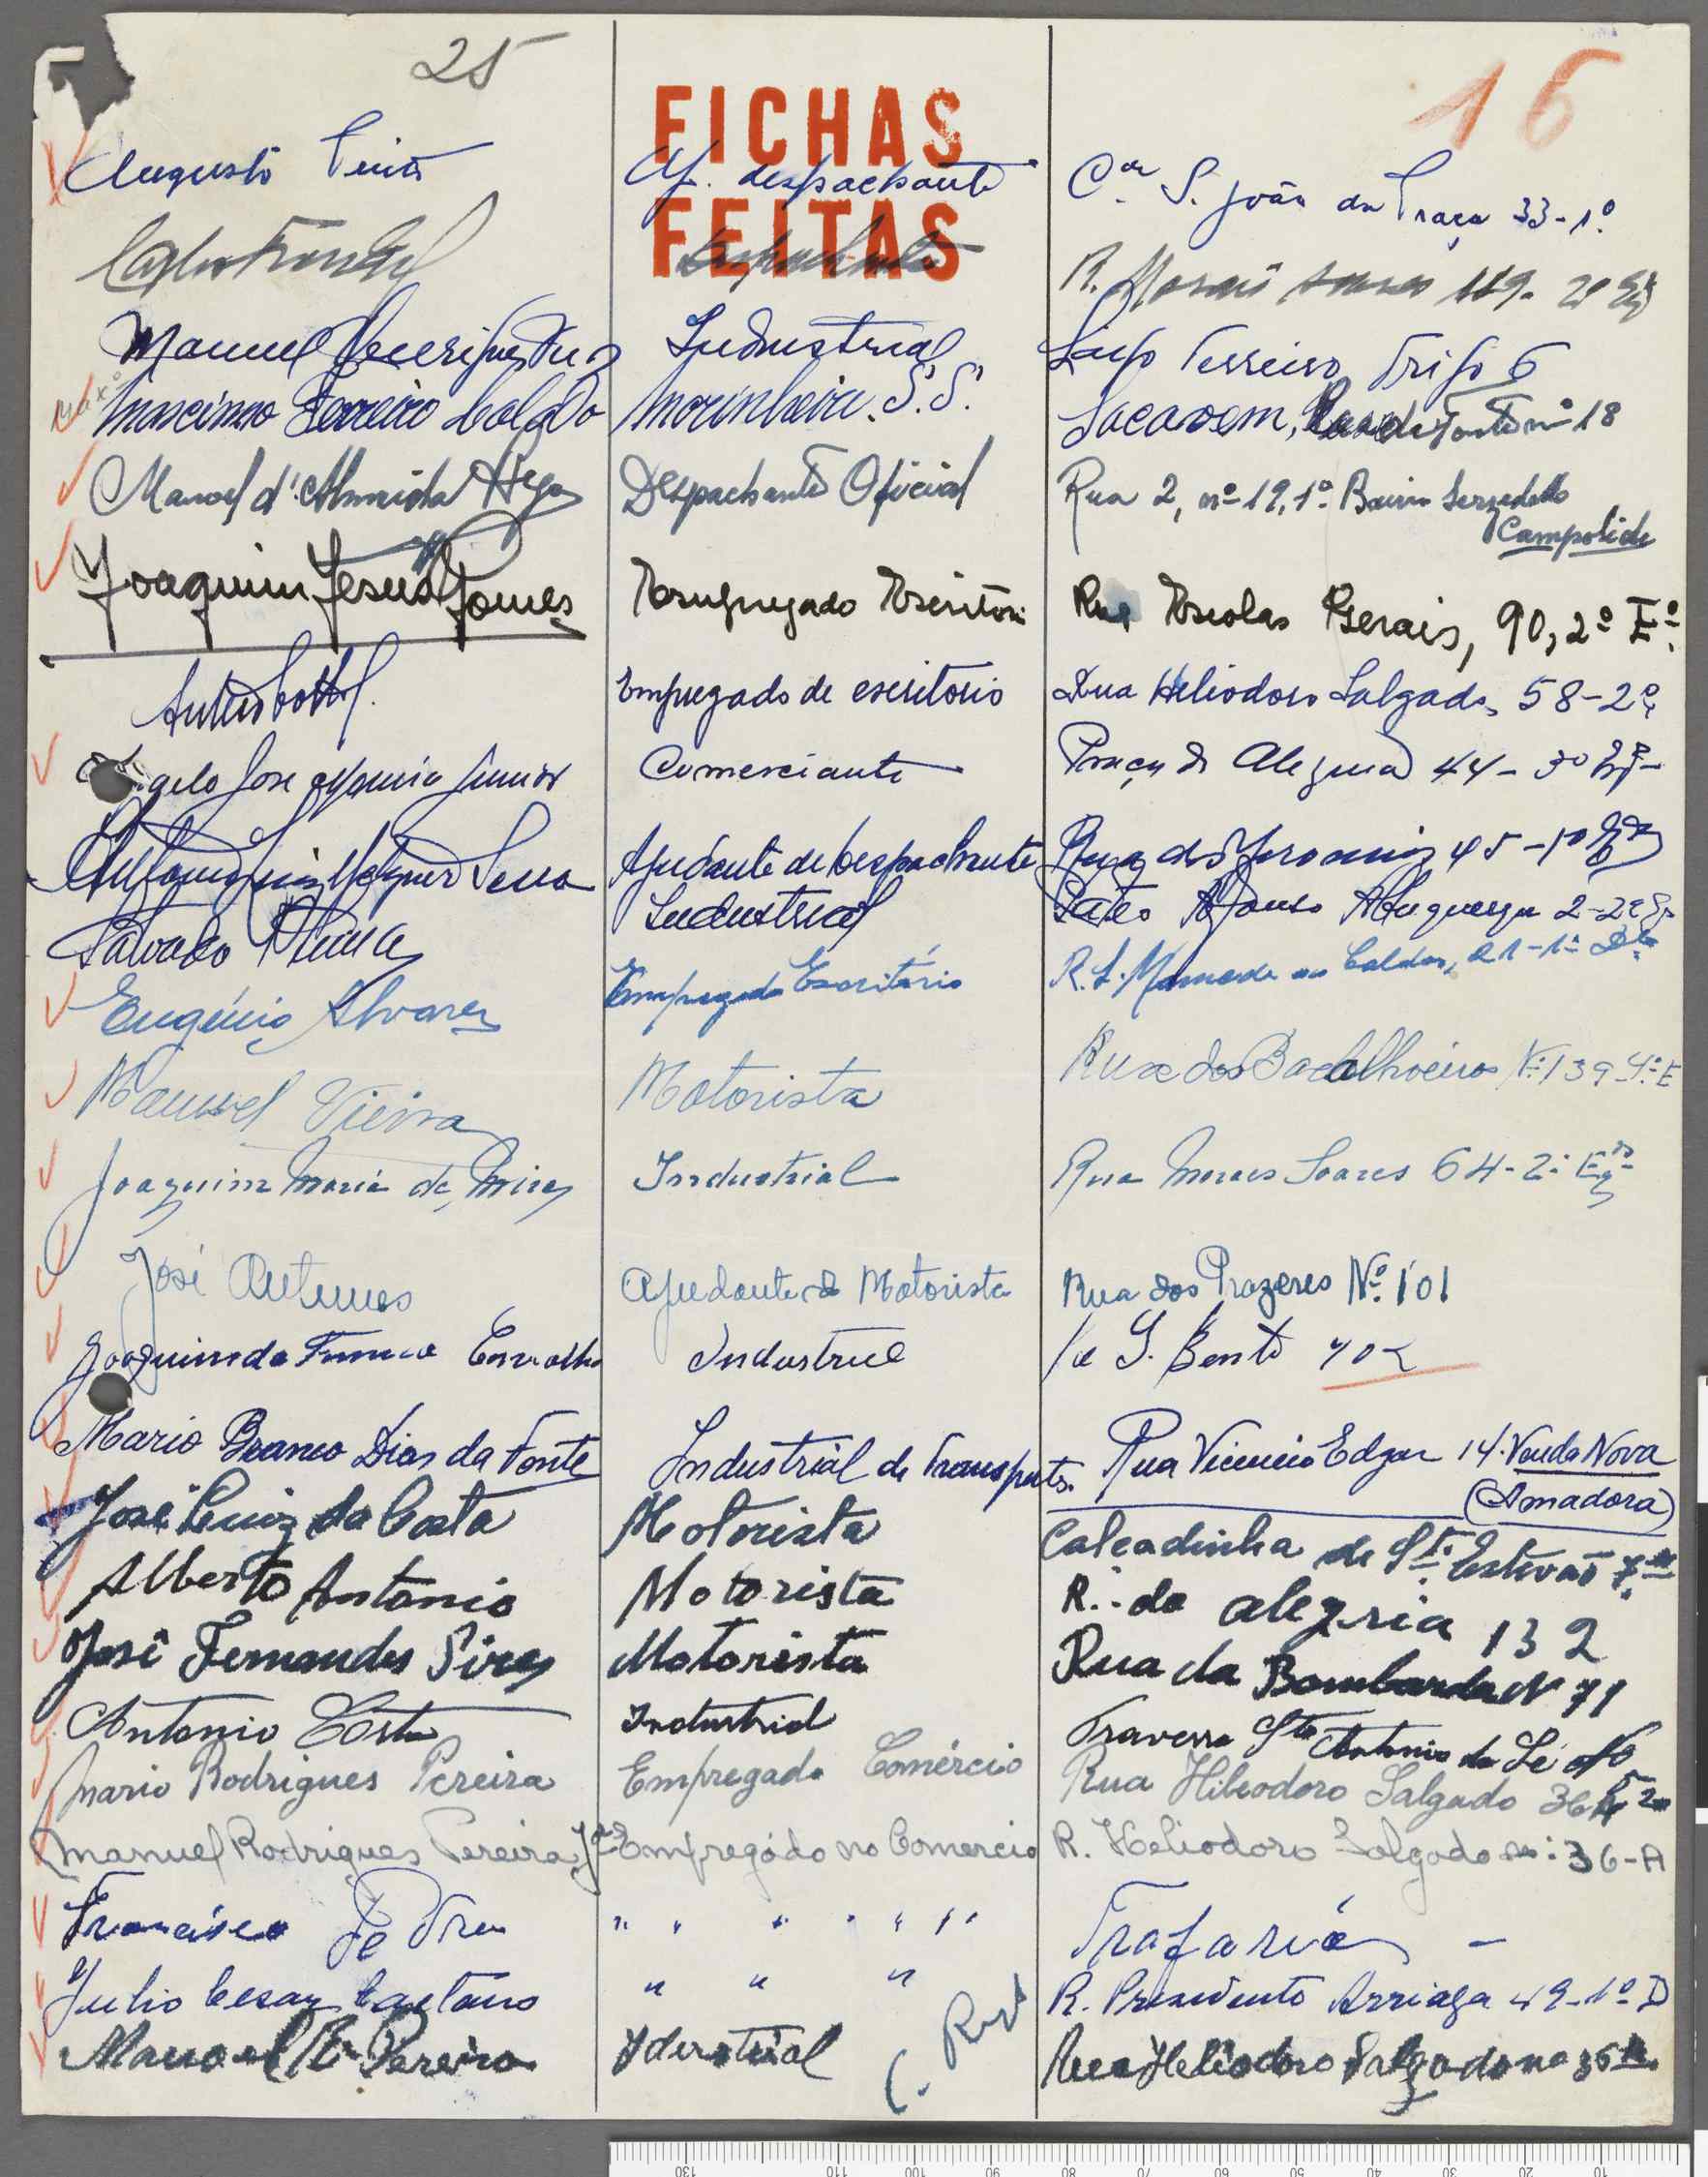 25
16
FICHAS
FEITAS
Augusto despachante C. S. João da Praça 33-1º
R. Morais Soares 119-
Manuel Industrial Largo Terreiro Trigo 6
Mascimo Ferreiro Marinheiro. S.S. Sacavem, nº 18
Manoel d'Almeida Despachante Oficial Rua 2, nº 19, 1º Bairro Serzedello
Campolide
Joaquim Jesus Gomes Empregado Escritori Rua Escolas Gerais, 90, 2º Eº
Empregado de escritorio Rua Heliodoro Salgado, 58-2º
gelo Jose Junior Comerciante Praça da Alegria 44-3º
Ajudante de despachante 45-1º
Industrial Pateo Afonso Albuquerque 2-2º
Eugénio Alvarez Empregado Escritório R. S. Mamede ao Caldas, 21-1º
Manuel Vieira Motorista Rua dos Bacalhoeiros Nº 139-4º E
Joaquim Maria de Industrial Rua Moraes Soares 64-2º
José Antunes Ajudante de Motorista Rua dos Prazeres Nº 101
Joaquim da Carvalho Industrial S. Bento 402
Mario Branco Dias da Fonte Industrial de Transportes. Rua Vicencio Edgar 14. Venda Nova
(Amadora)
José Luiz da Costa Motorista Calcadinha de Stº Estevão 7
Alberto Antonio Motorista R. da alegria 132
José Fernandes Pires Motorista Rua da Bombarda Nº 71
Antonio Costa Industrial Travessa Stº Antonio da Sé
Mario Rodrigues Pereira Empregado Comércio Rua Hileodoro Salgado 36
Manuel Rodrigues Pereira Jor Empregádo no Comercio R. Heliodoro Salgado nº: 36-A
Francisco Pedro " " " " " Trafaria -
Julio Cesar Caetano " " " R. Presidente Arriaga 49-1º D
Manoel Pereira Iderstrial Rua Heliodoro Salgado no 36